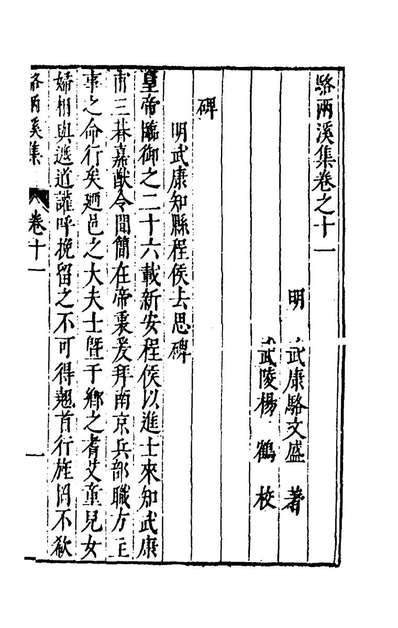 駱兩溪集卷之十一
明 武康駱文盛 著
武陵楊 鶴 校
碑
明武康知縣程侯去思碑
皇帝臨御之二十六載新安程侯以進士來知武康
甫三朞嘉猷令聞簡在帝秉爰拜南京兵部職方主
事之命行矣廼邑之大夫士曁于鄉之耆艾童兒女
婦相與遮道讙呼挽留之不可得翹首行旌罔不欷
駱兩溪集 卷十一 一